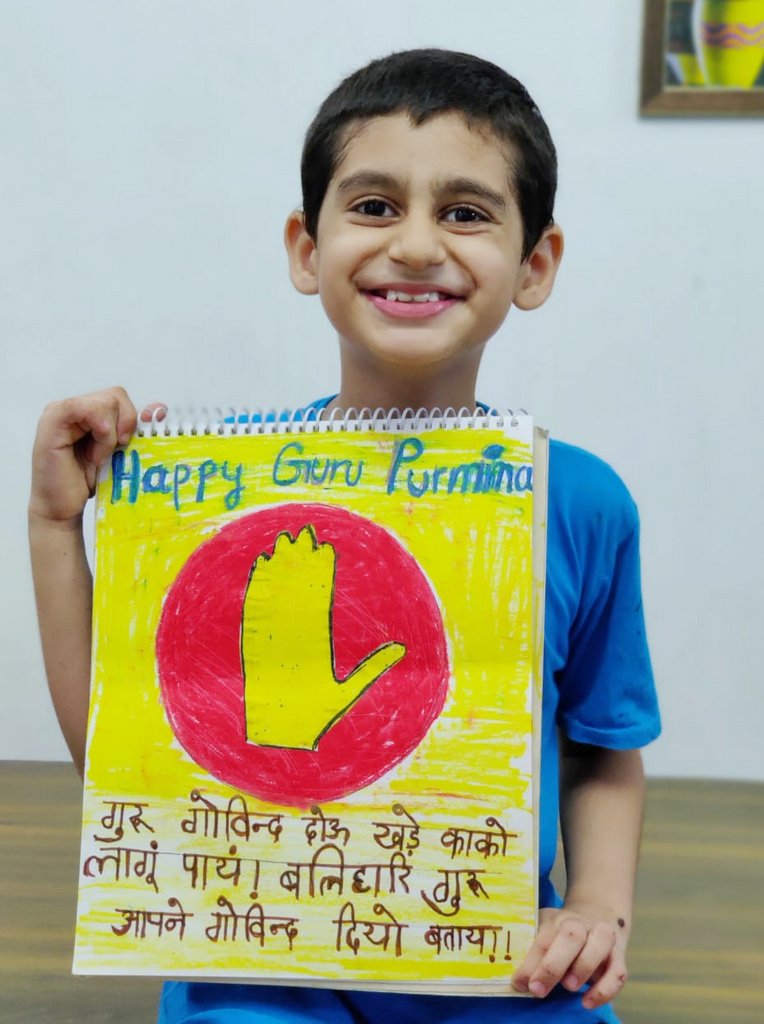 Happy Guru Purmina
गुरू गोविन्द दोऊ खड़े काको
लागूं पायं! बलिहारि गुरू
आपने गोविन्द दियो बताय!!